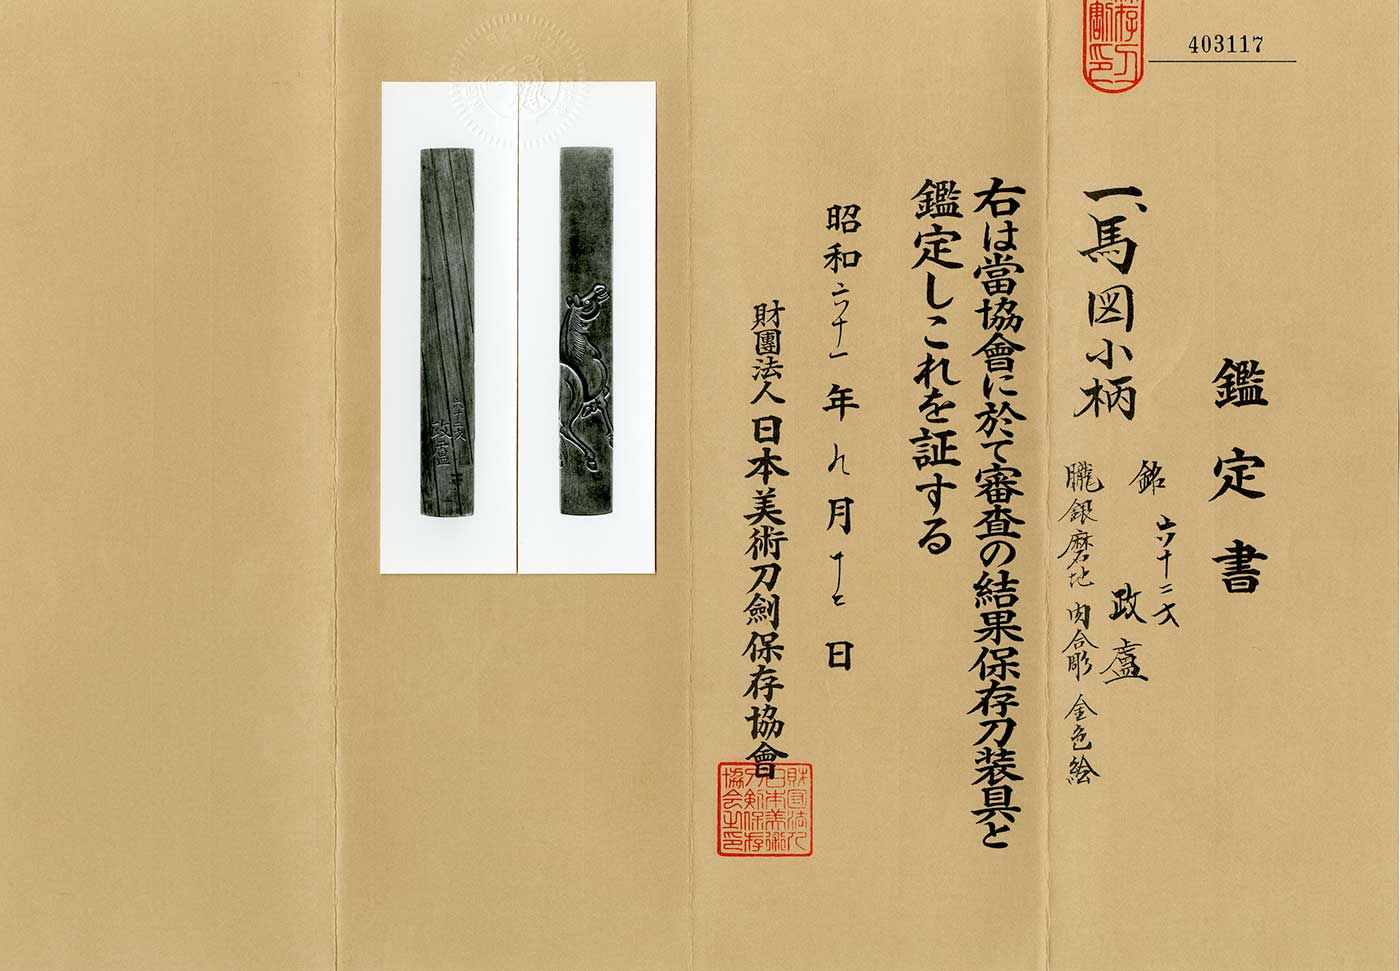 403117
鑑定書
一、馬図小柄
銘 六十二才
政盧
朧銀磨地 肉合彫 金色絵
右は當協會に於て審査の結果保存刀装具と
鑑定しこれを証する
昭和六十一年九月十二日
財團法人日本美術刀劍保存協會
財団法人
日本美術
刀剣保存
協会之印
六十二才
政盧